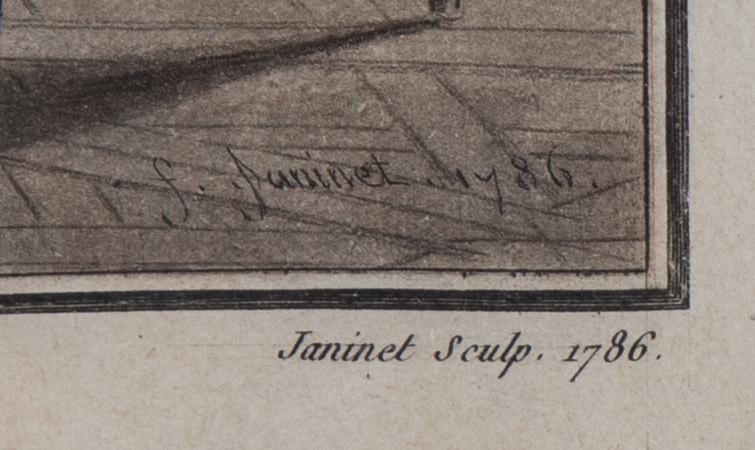 f. Janinet 1786.
Janinet Sculp. 1786.